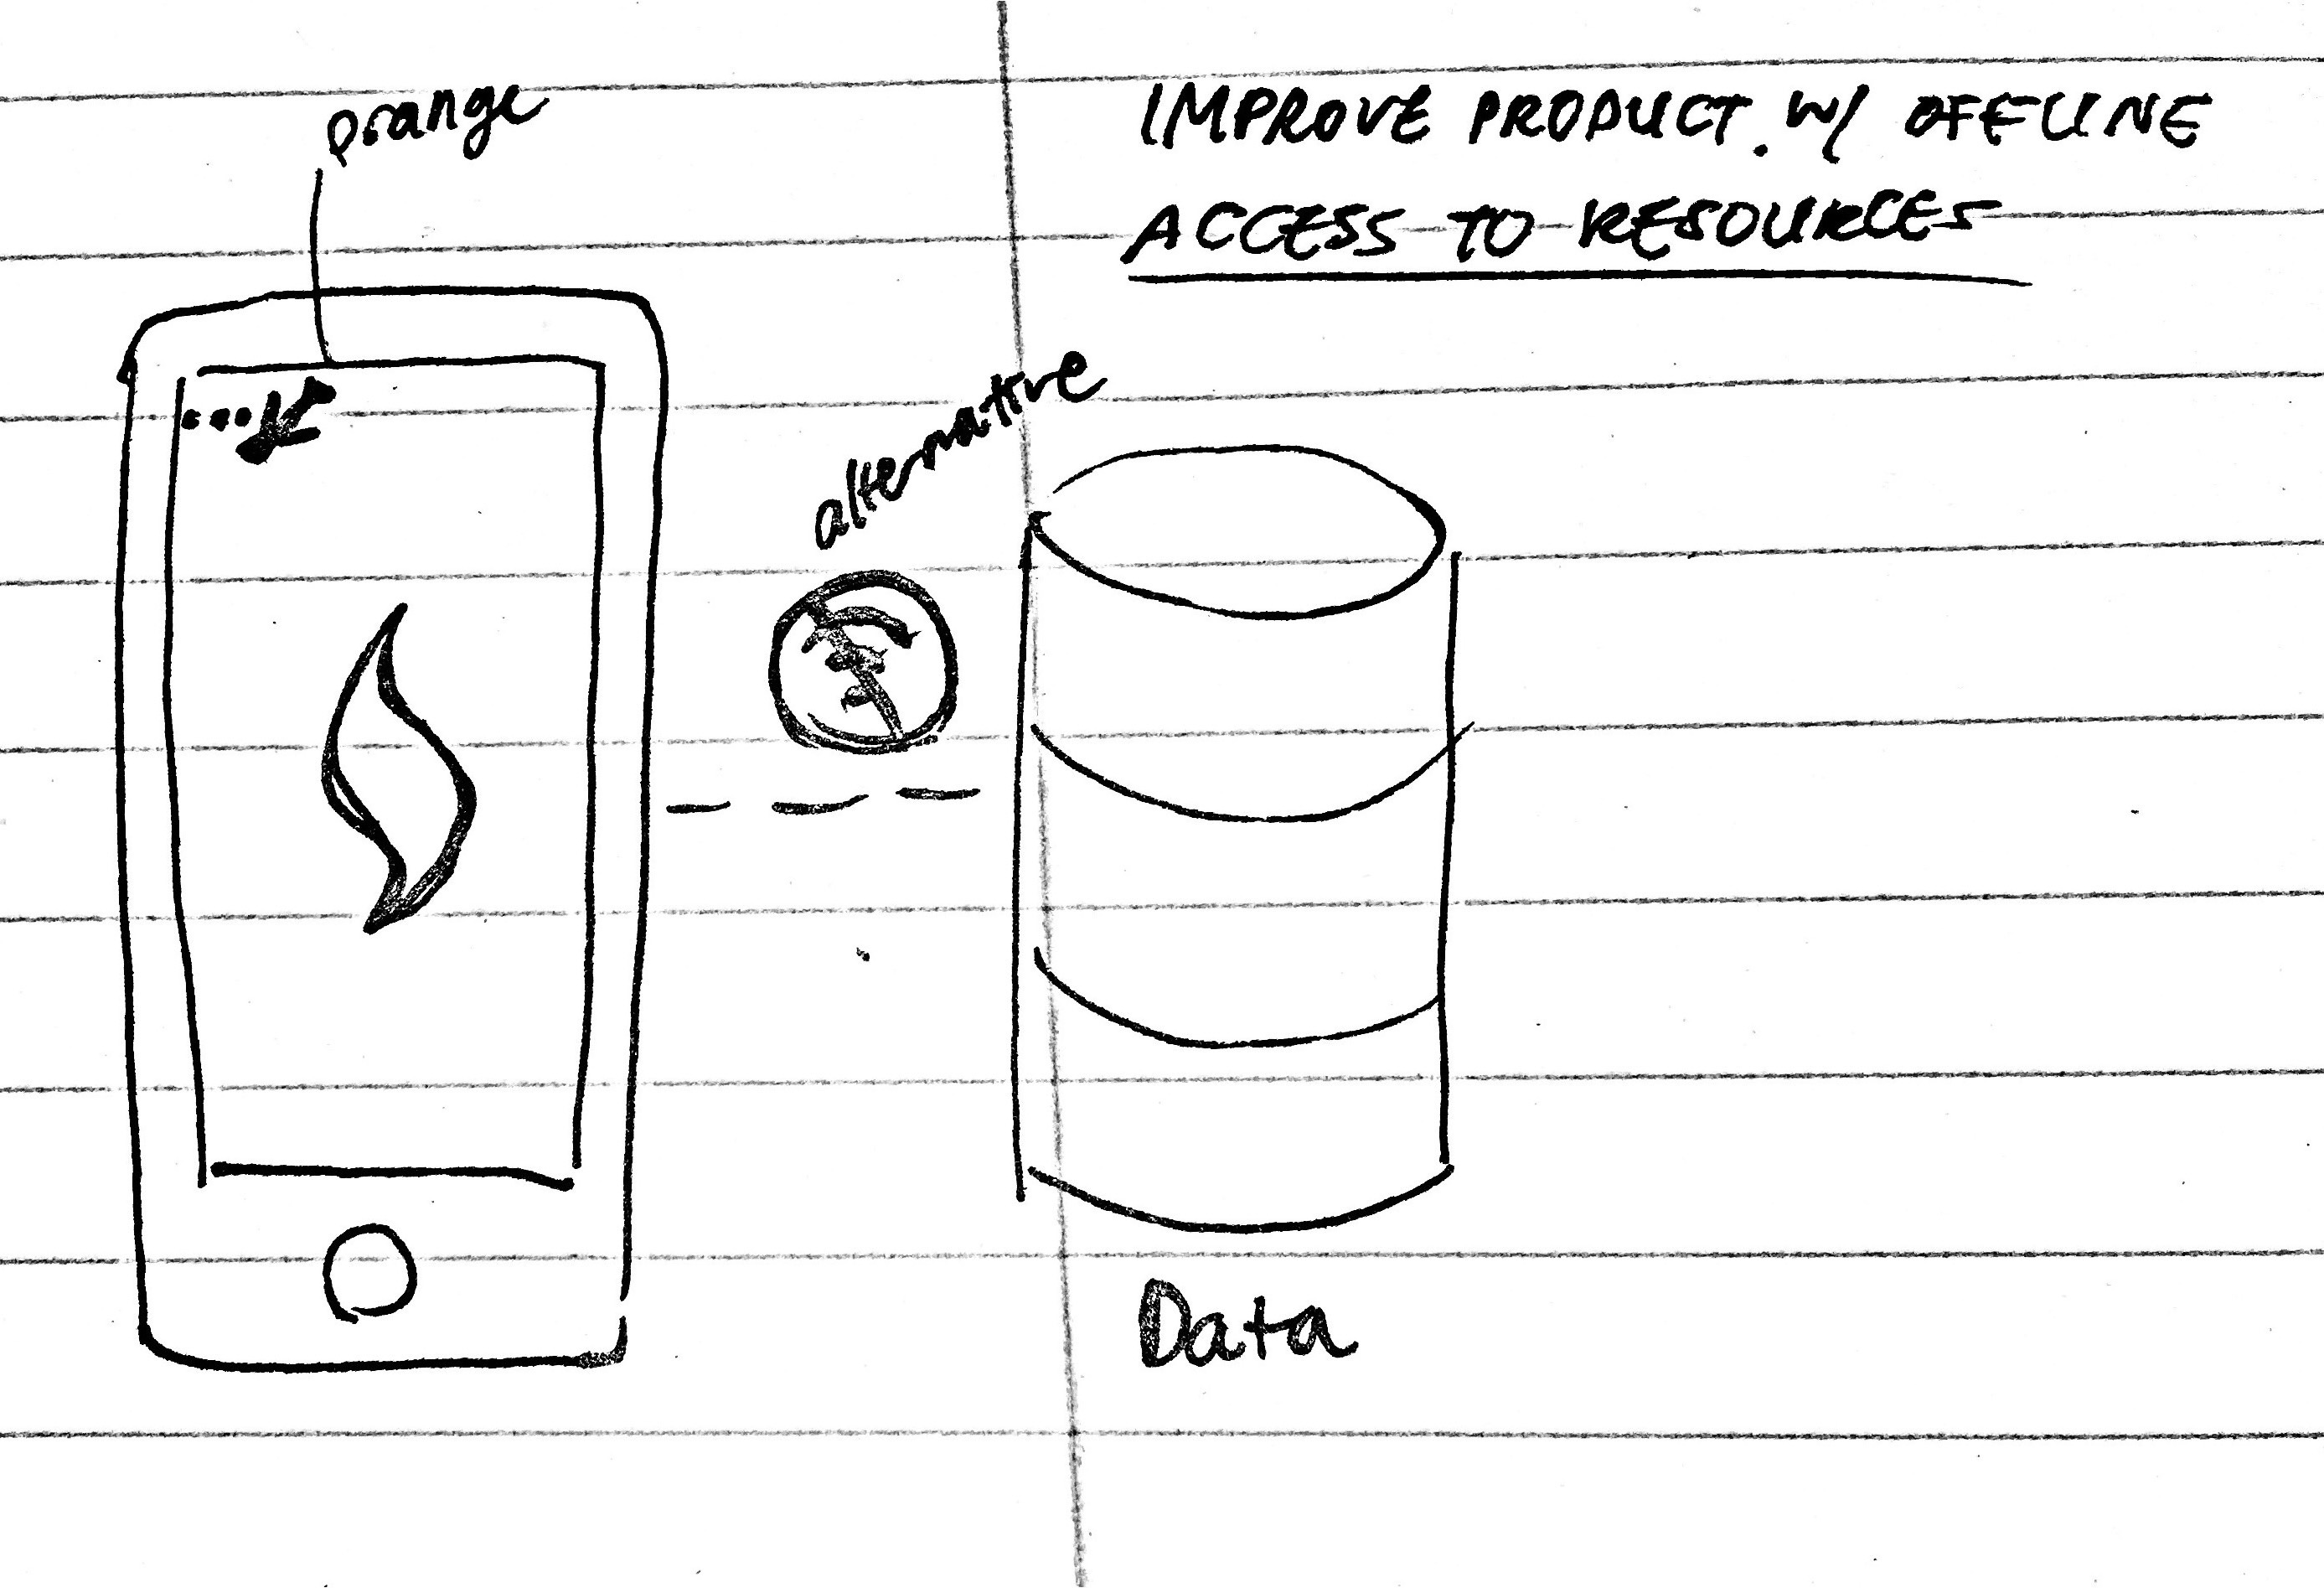 orange
IMPROVE PRODUCT. W/ OFFLINE
ACCESS TO RESOURCES
alternative
Data